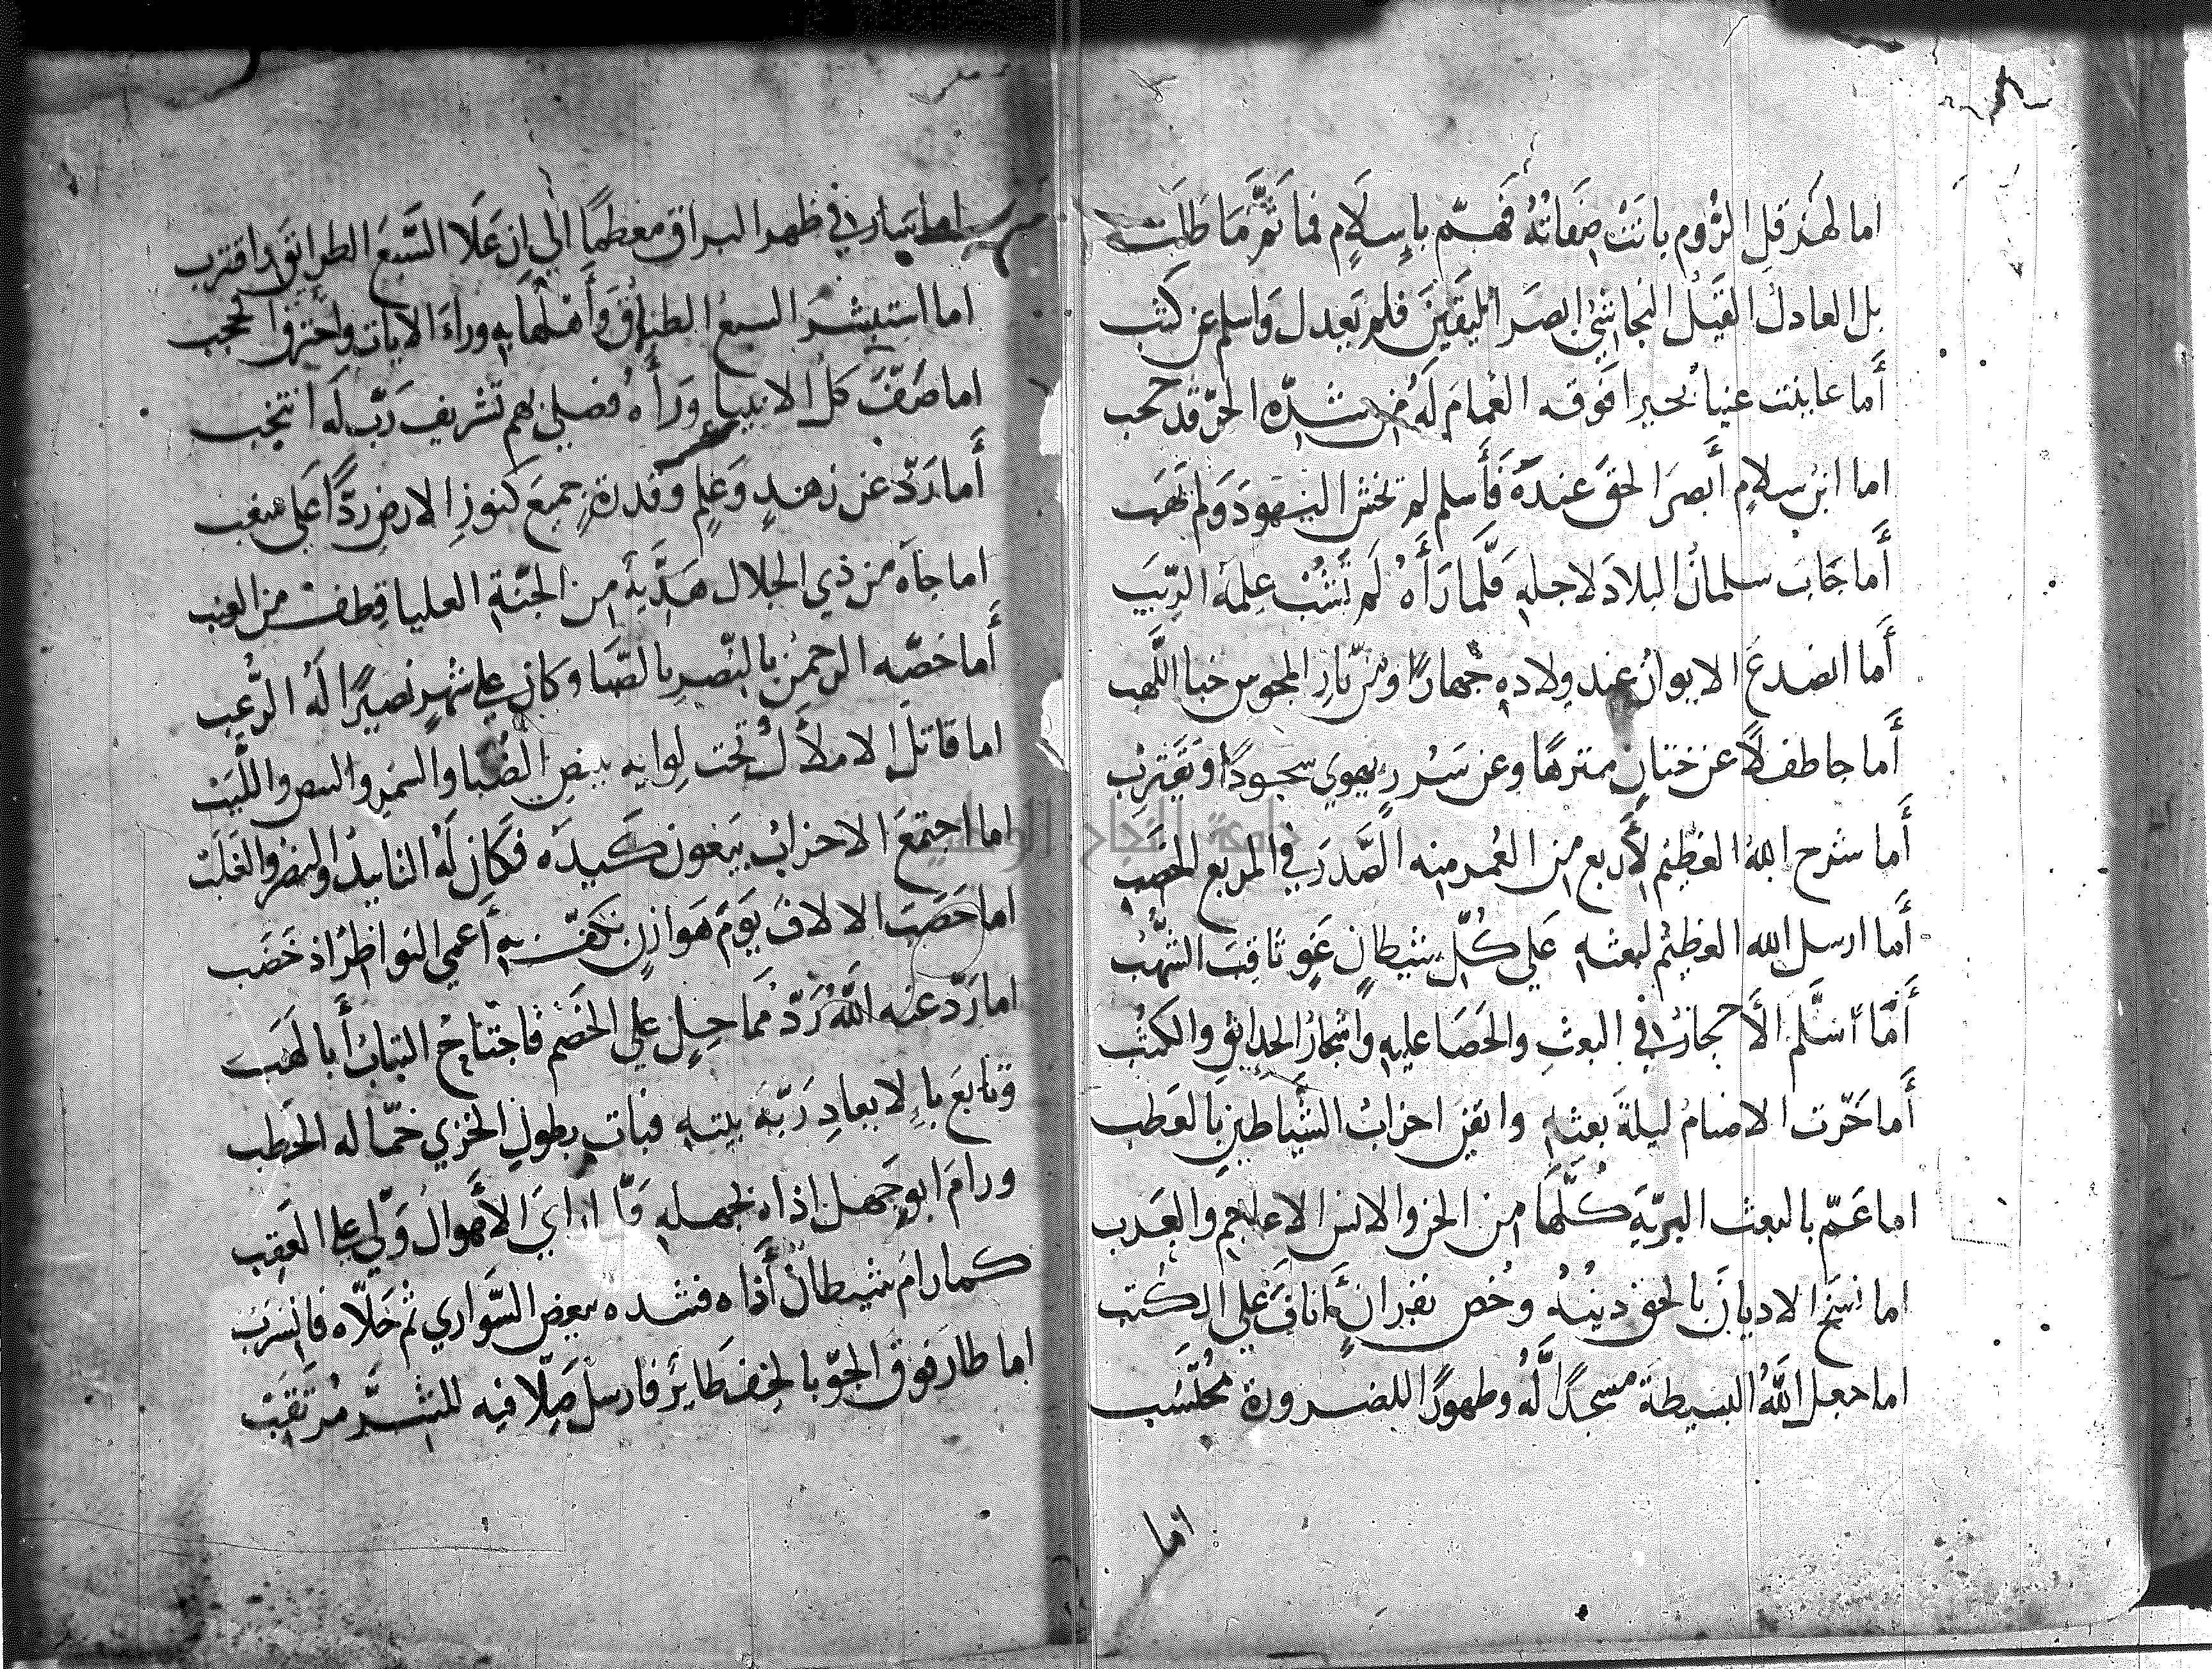 اما لهرقل الروم بانت صفاته فهمّ بإسلام فما ثمّ ما طلب
بل العادل القيل النجاشي ابصر اليقين فلم يعدل واسلم عن كثب
أما عاينت عينا بحيرا فوقه الغمام له من شدّة الحرّ قد حجب
اما ابن سلام أبصر الحق عنده فأسلم لم تخش اليهود ولم تهب
أما جاب سلمان البلاد لاجله فلما رأه لم تشب علمه الريب
أما انصدع الايوان عند ولاده جهارًا ومن نار المجوس خبا اللهب
أما جا طفلًا عن ختان منزها وعن سرر يهوي سجودًا ويقترب
أما شرح الله العظيم لأربع من العمر منه الصّدر في المربع الخصب
أما ارسل الله العظيم لبعثه علي كلّ شيطان غوٍ ثاقب الشهب
أما سلّم الأحجار في البعث والحصا عليه واشجار الحدايق والكثب
أما خرّت الاصنام ليلة بعثه وايقن احزاب الشياطين بالعطب
اما عمّ بالبعث البريّة كلّها من الجن والانس الاعاجم والعرب
اما نسخ الاديان بالحق دينه وخص بقران أناف علي الكتب
اما جعل الله البسيطة مسجدًا له وطهورًا للضرورة محتسب
اما
اما سار في ظهر البراق معظمًا الي ان علا السّبع الطرايق واقترب
اما استبشر السبع الطباق وأهلها به وراء الايات واخترق الحجب
اما صفّ كل الانبيا وراه فصلي بهم تشريف ربّ له انتخب
أما ردّ عن زهد وعلم وقدرة جميع كنوز الارض ردًّا علي سغب
اما جاه من ذي الجلال هديّة من الجنّة العليا قطف من العنب
أما خصّه الرحمن بالنّصر بالصّبا وكان علي شهر نصيرًا له الرّعب
اما قاتل الاملاك تحت لوايه ببيض الضبا والسمر والبيض واللبب
اما اجتمع الاحزاب يبغون كيده فكان له التاييد والنصر والغلب
اما حصب الالاف يوم هوازن بكفّ به أعمي النواظر اذ حصب
اما ردّ عنه الله ردّ مماحل علي الخصم فاجتاح التباب أبا لهب
وتابع بالابعاد ربّة بيته فباتت بطول الخزي حمّالة الحطب
ورام ابو جهل اذاه لجهله فلما راي الأهوال ولّي علي العقب
كما رام شيطان أذاه فشده ببعض السّواري ثم خلّاه فانسرب
اما طار فوق الجوّ بالخف طاير فارسل صلّا فيه للشرّ مرتقب